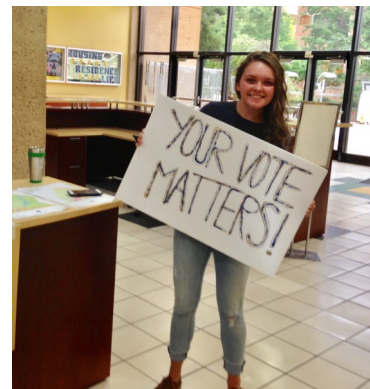 HOUSING
RESIDENCE
LIFE
YOUR VOTE
MATTERS!